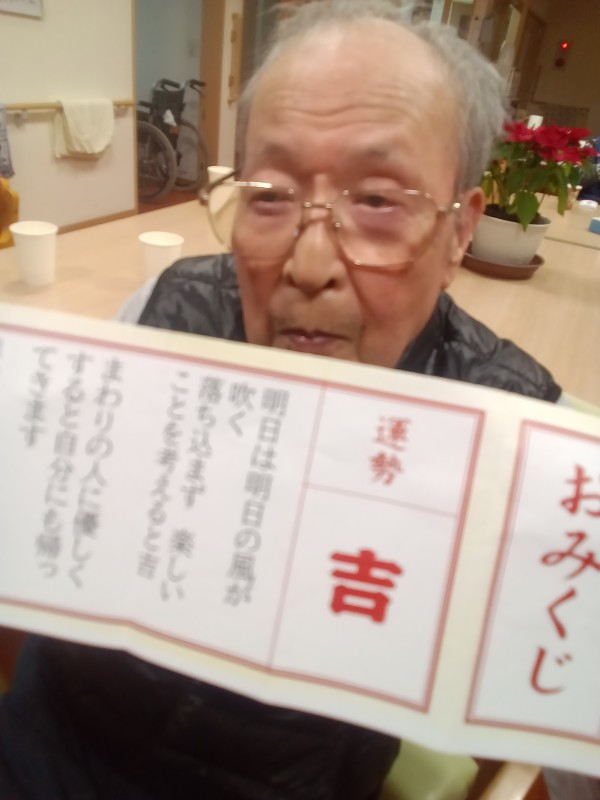 おみくじ
運勢
吉
明日は明日の風が
吹く
落ち込まず 楽しい
ことを考えると吉
まわりの人に優しく
すると自分にも帰っ
てきます